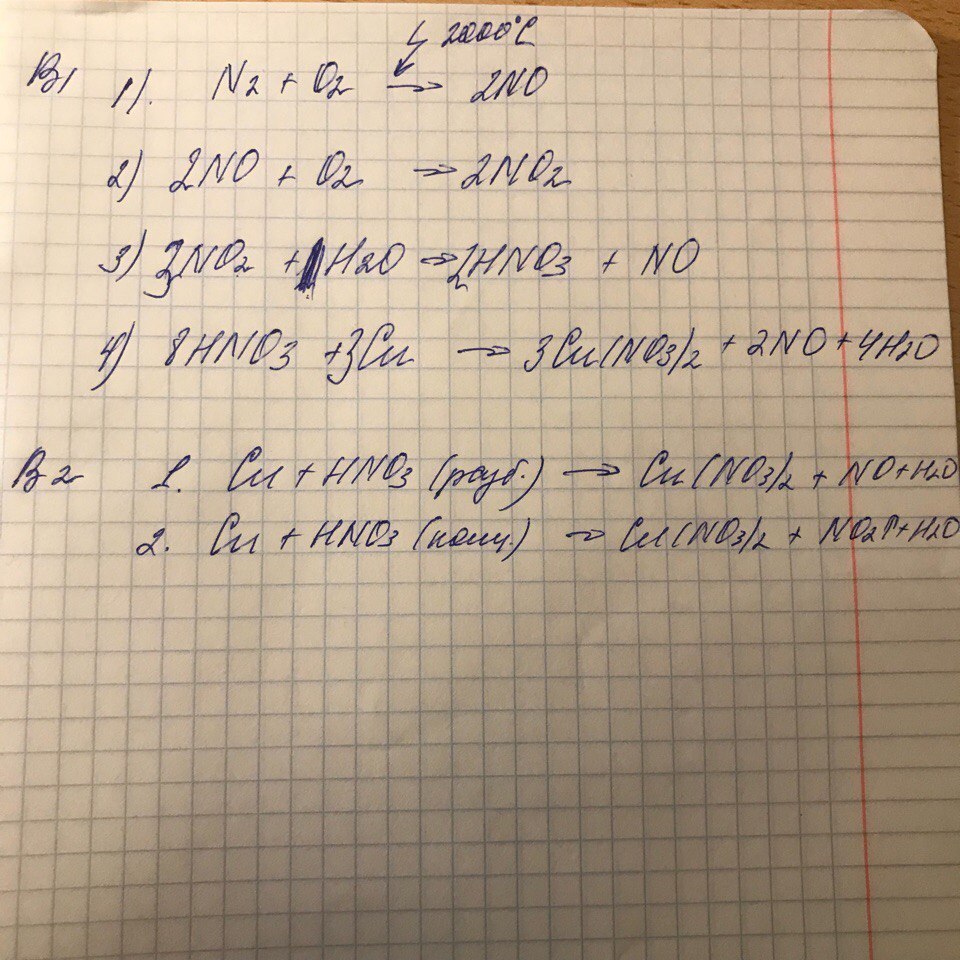 ↯ 2000°C
В1 1). N2 + O2 → 2NO
2) 2NO + O2 → 2NO2
3) 3NO2 + H2O → 2HNO3 + NO
4) 8HNO3 + 3Cu → 3Cu(NO3)2 + 2NO + 4H2O
В2 1. Cu + HNO3 (разб.) → Cu(NO3)2 + NO + H2O
2. Cu + HNO3 (конц.) → Cu(NO3)2 + NO2↑ + H2O